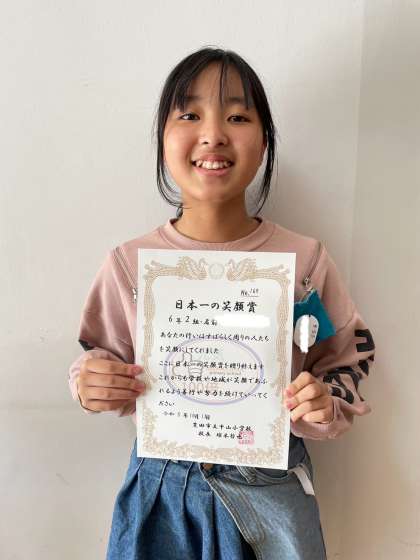 No. 169
日本一の笑顔賞
6年2組・名前
あなたの行いはすばらしく周りの人たち
を笑顔にしてくれました
ここに日本一の笑顔賞を贈り称えます
これからも学校や地域が笑顔であふ
れるよう善行や努力を続けていってく
ださい
令和5年10月
市立平山小学校
校長